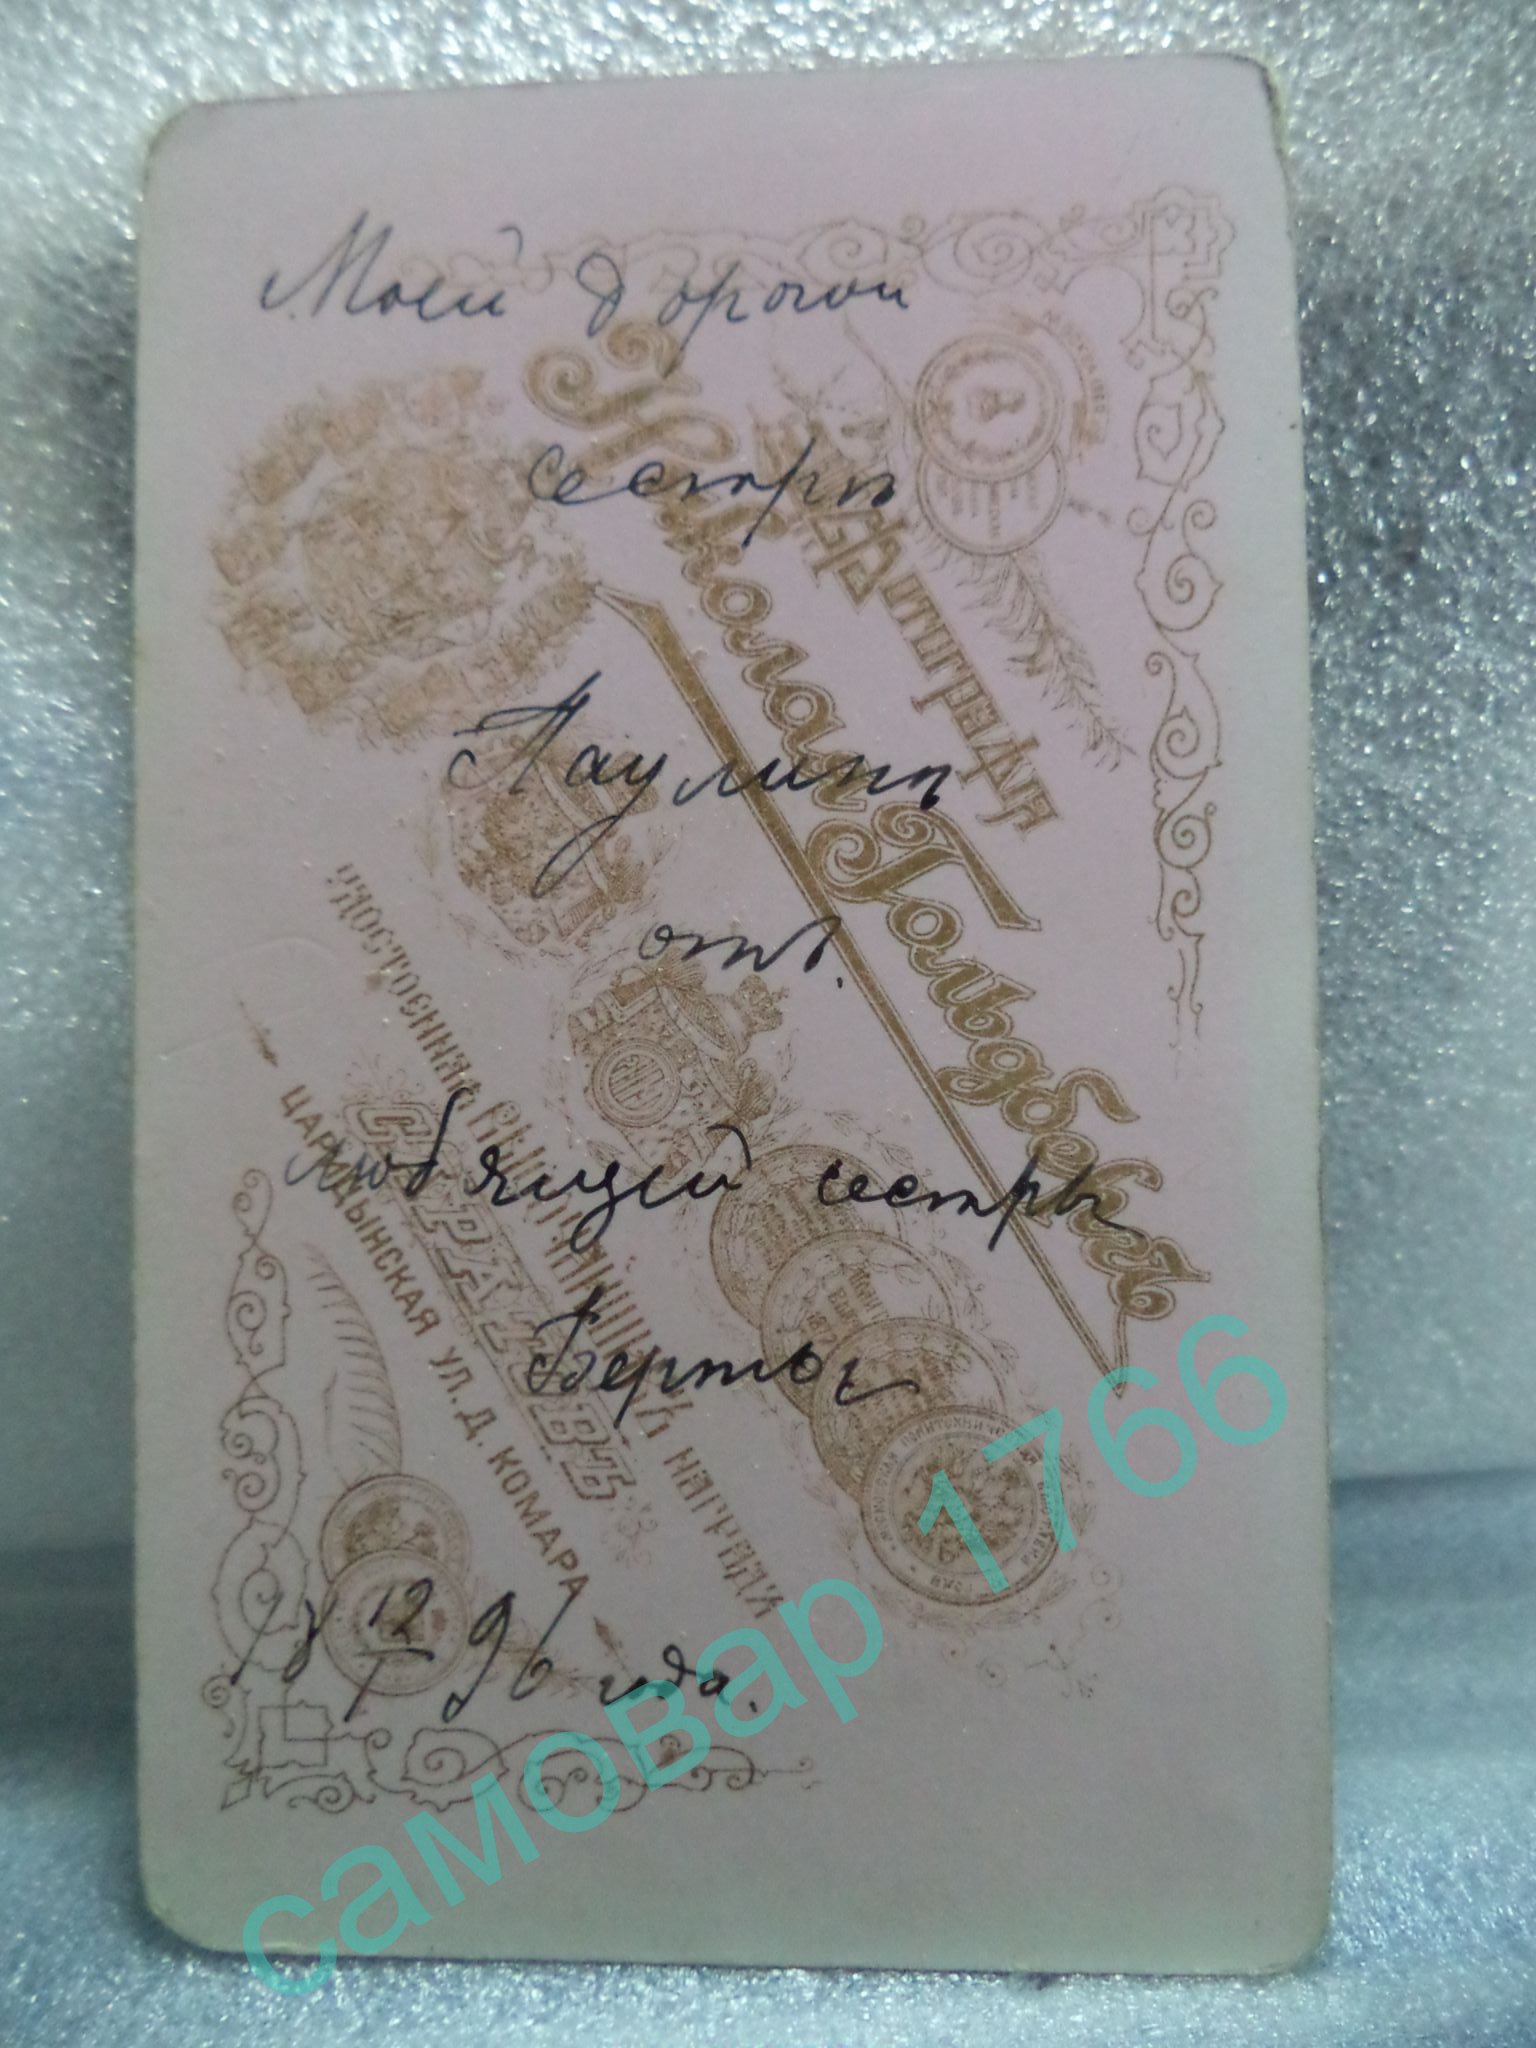 Моей дорогой
сестрѣ
Паулинѣ
отъ.
любящей сестры
Берты
18 12/I 96 года.
Фотографія
Николая Гольдбергъ
удостоенная высочайшихъ наградъ
САРАТОВЪ
ЦАРИЦЫНСКАЯ УЛ. Д. КОМАРА
самовар 1766